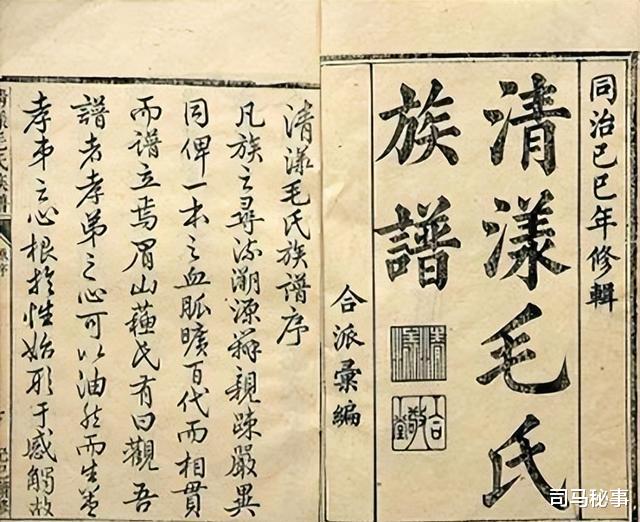 同治己巳年修輯
清漾毛氏
族譜
合派彙編
清漾毛氏族譜序
凡族之尋流溯源辨親疎嚴異
同俾一本之血脈曠百代而相貫
而譜立焉眉山蘓氏有曰觀吾
譜者孝弟之心可以油然而生蓋
孝弟之心根於性始形于感觸故
清漾毛氏族譜
司马秘事